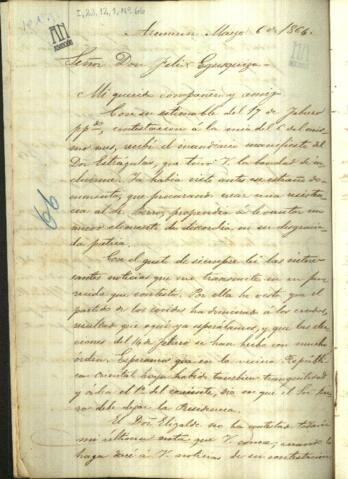 I, 22, 12, 1, Nº 66
Asuncion Marzo 6 de 1864.
Señor Don Felix Egusquiza.
Mi querido compañero y amigo
Con su estimable del 17 de Febrero
ppdo, contestacion á la mia del 6 del mis
mo mes, recibí el inmundicia manifiesto del
Dor Estrázulas, que tuvo V. la bondad de in
cluirme. Ya habia visto antes ese estraño do
cumento, que procurando crear una resisten
cia al Sr. Berro, propendia á levantar un
nuevo elemento de discordia en su desgracia
da patria.
Con el gusto de siempre leí las intere
santes noticias que me transmite en su pre
cada que contesto. Por ella he visto que el
partido de los cocidos ha vencido á los crudos,
resultado que aquí ya esperábamos, y que las elec
ciones del 14 de Febrero se han hecho con mucho
órden. Esperamos que en la vecina Repúbli
ca Oriental haya habido tambien tranquilidad
el 1º del corriente, dia en que el Sor
debe dejar la Presidencia.
El Dor Elizalde no ha contestado todavia
mi última nota que V. conoce; cuando lo
haga daré á V. noticias de su contestacion
66